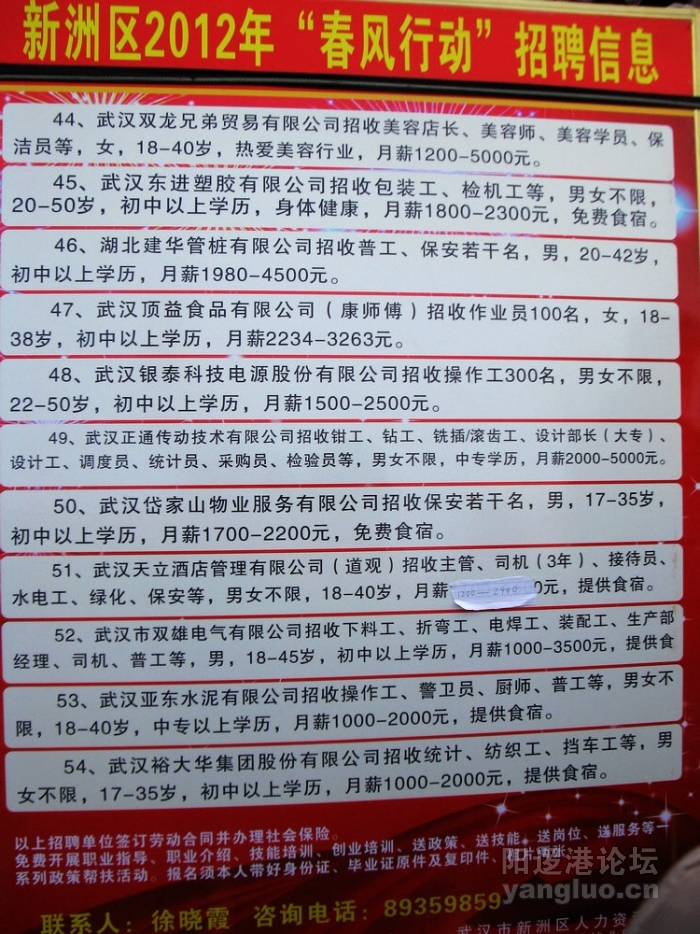 新洲区2012年“春风行动”招聘信息
44、武汉双龙兄弟贸易有限公司招收美容店长、美容师、美容学员、保
洁员等，女，18-40岁，热爱美容行业，月薪1200-5000元。
45、武汉东进塑胶有限公司招收包装工、检机工等，男女不限，
20-50岁，初中以上学历，身体健康，月薪1800-2300元，免费食宿。
46、湖北建华管桩有限公司招收普工、保安若干名，男，20-42岁，
初中以上学历，月薪1980-4500元。
47、武汉顶益食品有限公司（康师傅）招收作业员100名，女，18-
38岁，初中以上学历，月薪2234-3263元。
48、武汉银泰科技电源股份有限公司招收操作工300名，男女不限，
22-50岁，初中以上学历，月薪1500-2500元。
49、武汉正通传动技术有限公司招收钳工、钻工、铣插/滚齿工、设计部长（大专）、
设计工、调度员、统计员、采购员、检验员等，男女不限，中专学历，月薪2000-5000元。
50、武汉岱家山物业服务有限公司招收保安若干名，男，17-35岁，
初中以上学历，月薪1700-2200元，免费食宿。
51、武汉天立酒店管理有限公司（道观）招收主管、司机（3年）、接待员、
水电工、绿化、保安等，男女不限，18-40岁，月薪1200-2900元，提供食宿。
52、武汉市双雄电气有限公司招收下料工、折弯工、电焊工、装配工、生产部
经理、司机、普工等，男，18-45岁，初中以上学历，月薪1000-3500元，提供食
53、武汉亚东水泥有限公司招收操作工、警卫员、厨师、普工等，男女不
限，18-40岁，中专以上学历，月薪1000-2000元，提供食宿。
54、武汉裕大华集团股份有限公司招收统计、纺织工、挡车工等，男
女不限，17-35岁，初中以上学历，月薪1000-2000元，提供食宿。
以上招聘单位签订劳动合同并办理社会保险。
免费开展职业指导、职业介绍、技能培训、创业培训、送政策、送技能、送岗位、送服务等一
系列政策帮扶活动。报名须本人带好身份证、毕业证原件及复印件、
阳逻港论坛
yangluo.cn
联系人：徐晓霞 咨询电话：89359859
武汉市新洲区人力资